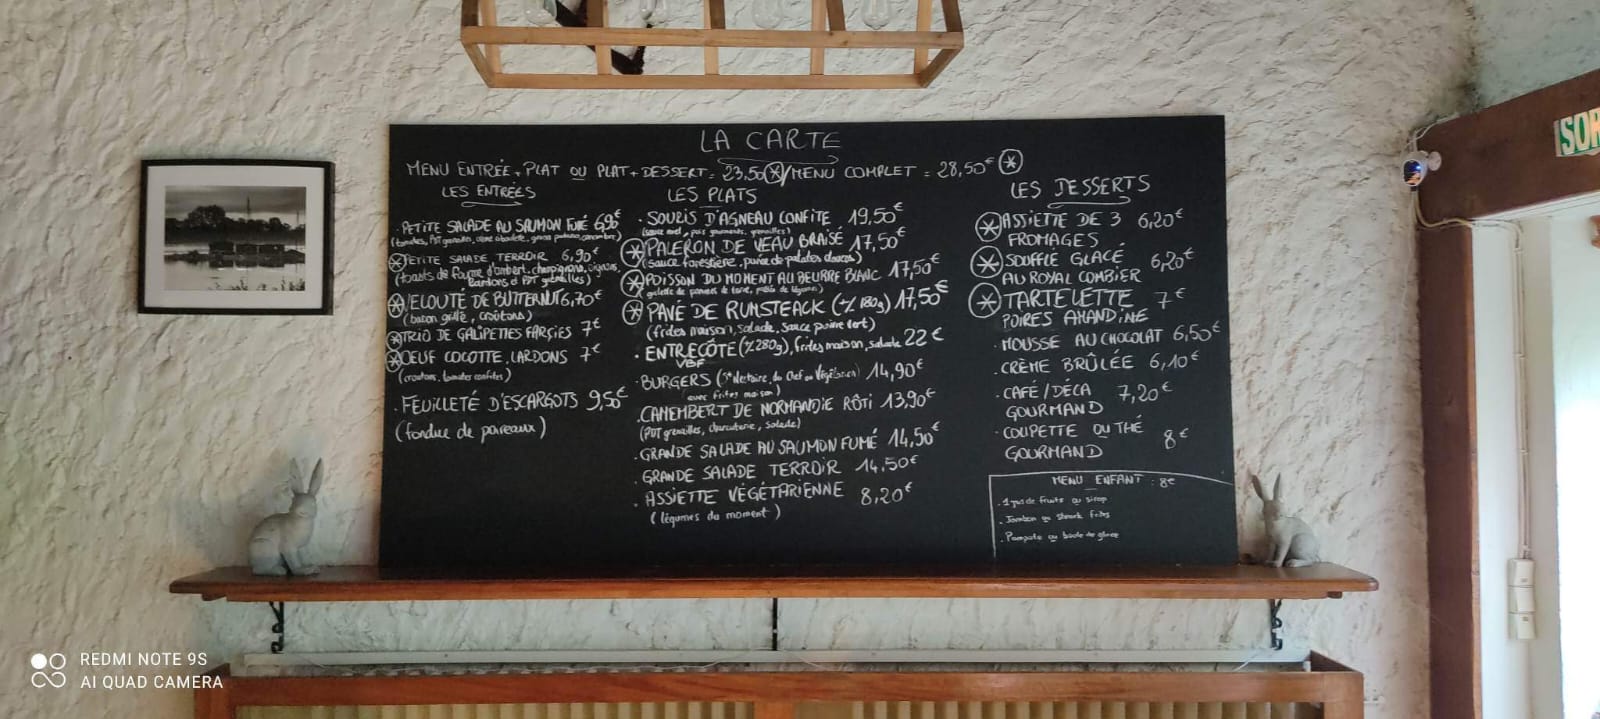 LA CARTE
MENU ENTRÉE + PLAT OU PLAT + DESSERT = 23,50 * / MENU COMPLET = 28,50€ *
LES ENTRÉES
· PETITE SALADE AU SAUMON FUMÉ 6,90€
* PETITE SALADE TERROIR 6,90€
(toasts de fourme d'ambert, champignons, oignons,
lardons et PDT grenailles)
* VELOUTÉ DE BUTTERNUT 6,70€
(bacon grillé, croûtons)
* TRIO DE GALIPETTES FARÇIES 7€
* OEUF COCOTTE, LARDONS 7€
(croutons, tomates confites)
· FEUILLETÉ D'ESCARGOTS 9,50€
(fondue de poireaux)
LES PLATS
· SOURIS D'AGNEAU CONFITE 19,50€
(sauce miel, pois gourmands, grenailles)
* PALERON DE VEAU BRAISÉ 17,50€
(sauce forestière, purée de patates douces)
* POISSON DU MOMENT AU BEURRE BLANC 17,50€
* PAVÉ DE RUMSTEACK (% 180g) 17,50€
(frites maison, salade, sauce poivre vert)
· ENTRECÔTE (% 280g), frites maison, salade 22€
VBF
· BURGERS (St Nectaire, du Chef ou Végétarien) 14,90€
avec frites maison)
· CAMEMBERT DE NORMANDIE RÔTI 13,90€
(PDT grenailles, charcuterie, salade)
· GRANDE SALADE AU SAUMON FUMÉ 14,50€
· GRANDE SALADE TERROIR 14,50€
· ASSIETTE VÉGÉTARIENNE 8,20€
(légumes du moment)
LES DESSERTS
* ASSIETTE DE 3 6,20€
FROMAGES
* SOUFFLÉ GLACÉ 6,20€
AU ROYAL COMBIER
* TARTELETTE 7€
POIRES AMANDINE
· MOUSSE AU CHOCOLAT 6,50€
· CRÈME BRÛLÉE 6,10€
· CAFÉ / DÉCA 7,20€
GOURMAND
· COUPETTE OU THÉ 8€
GOURMAND
MENU ENFANT : 8€
· 1 jus de fruits ou sirop
· Jambon ou Steack frites
· Pompote ou boule de glace
SOR
REDMI NOTE 9S
AI QUAD CAMERA